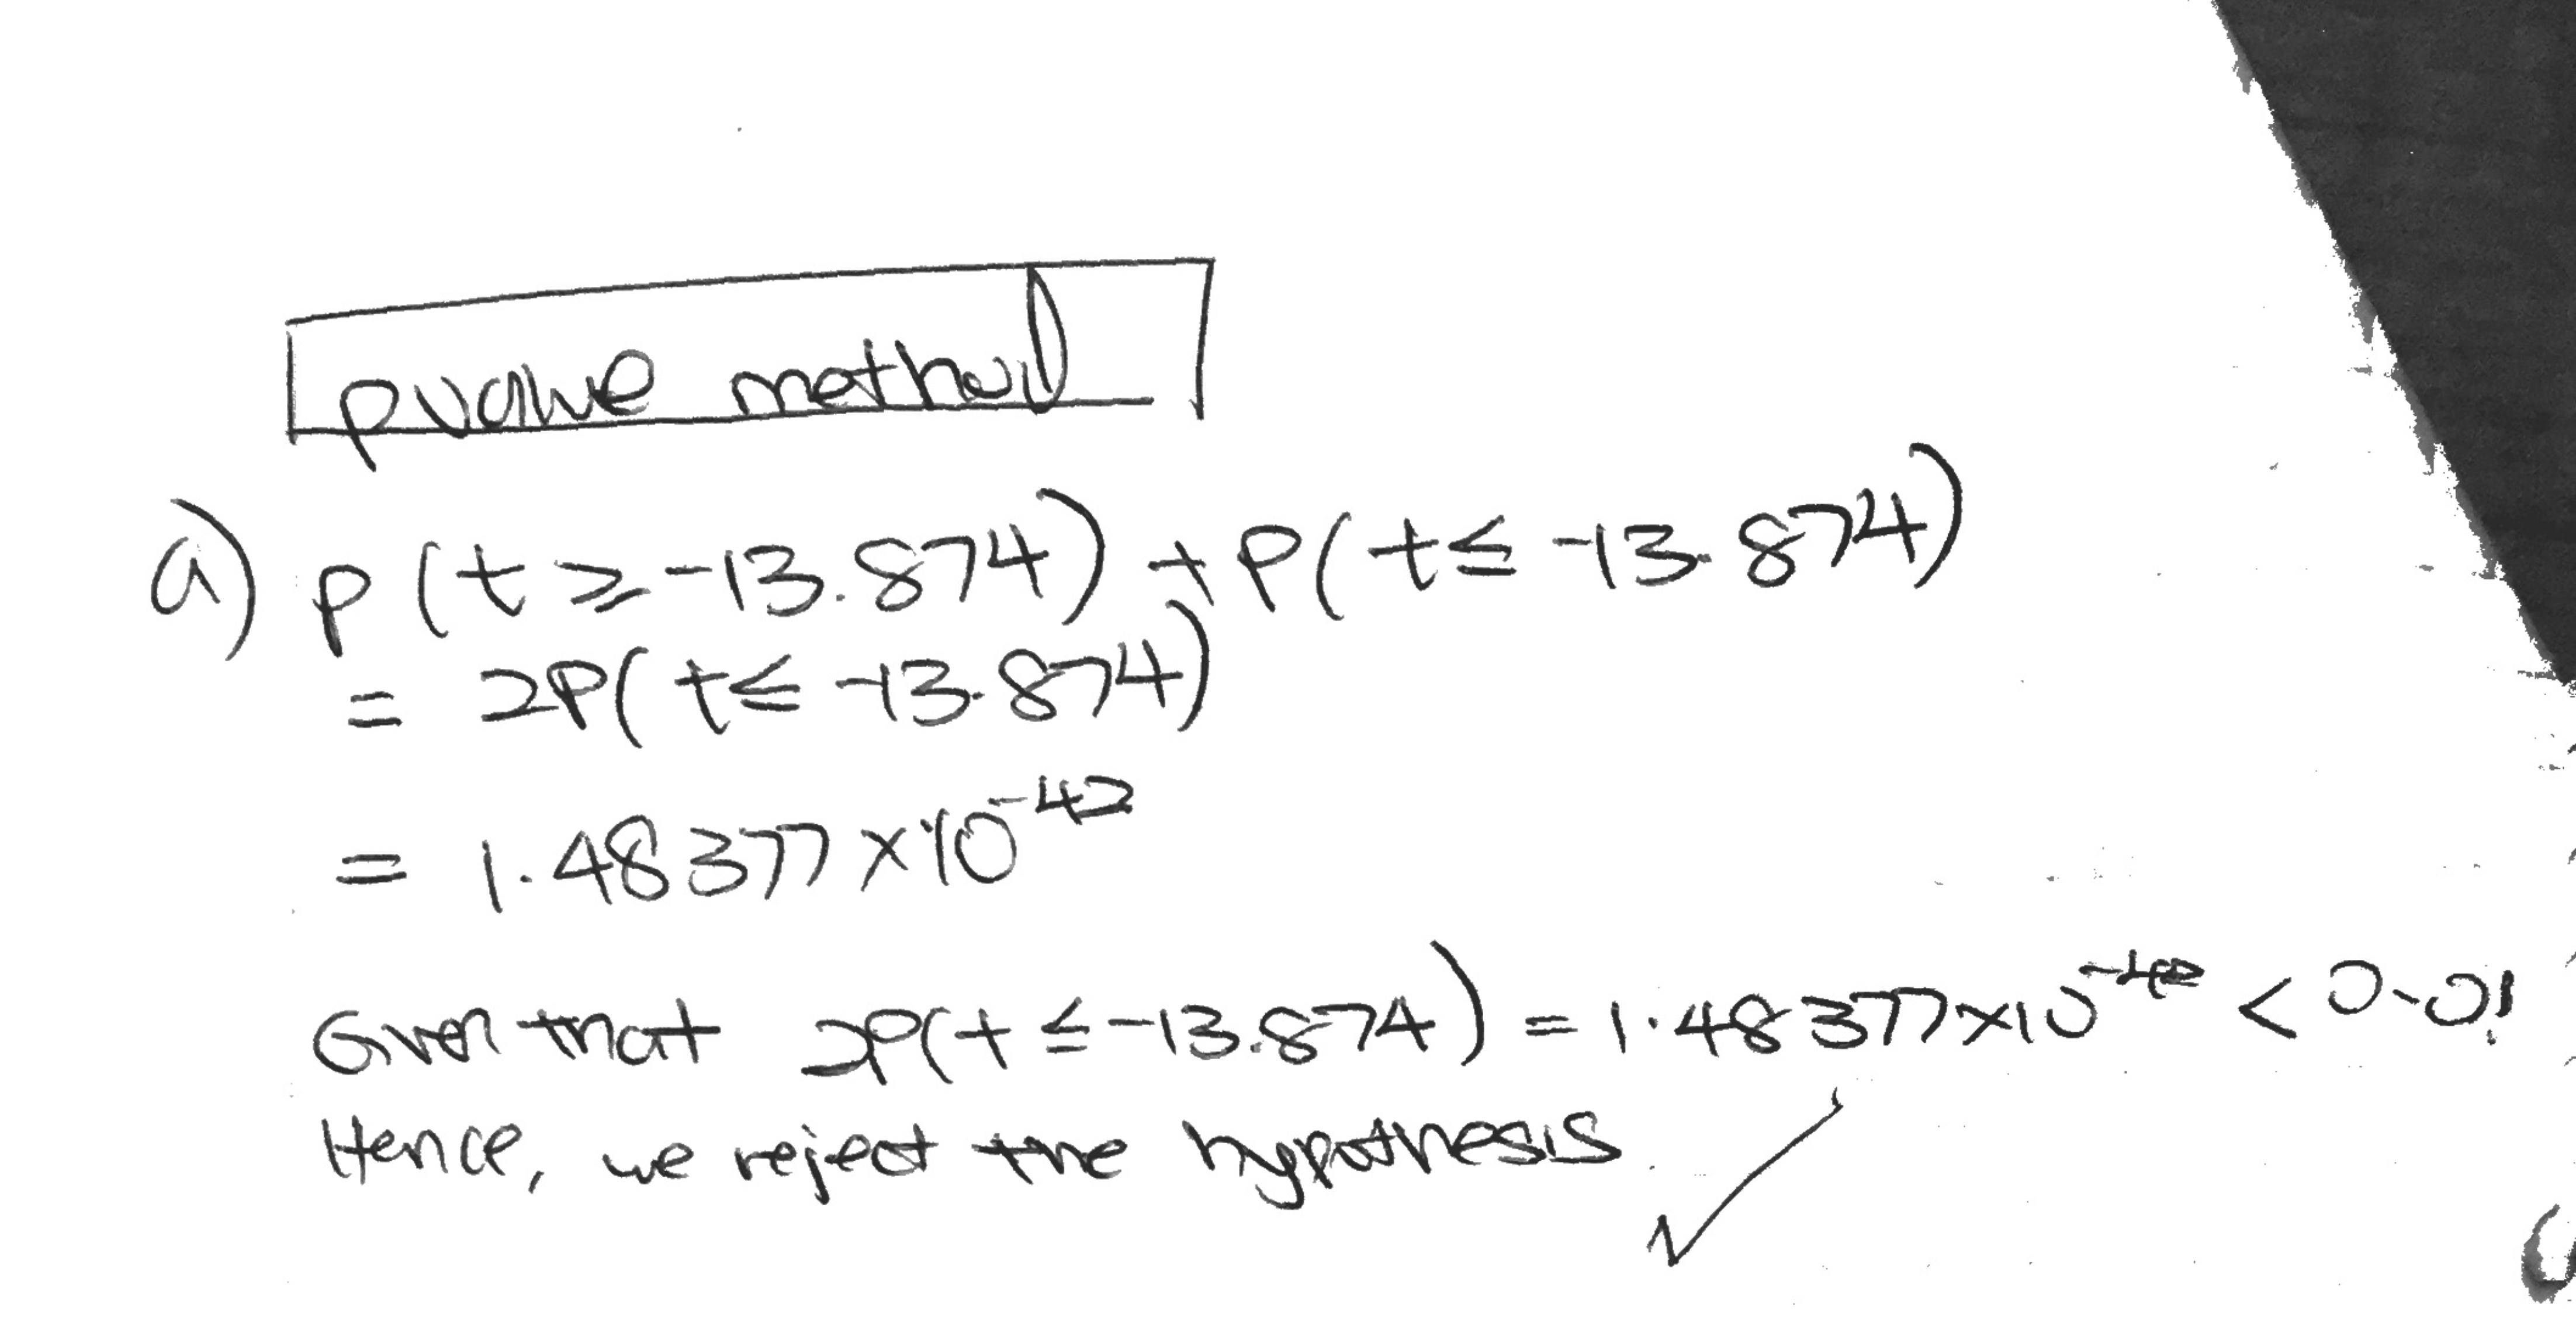 pvalue method
a) P(t ≥ -13.874) + P(t ≤ -13.874)
= 2P(t ≤ -13.874)
= 1.48377 × 10^-42
Given that 2P(t ≤ -13.874) = 1.48377 × 10^-42 < 0.01
Hence, we reject the hypothesis